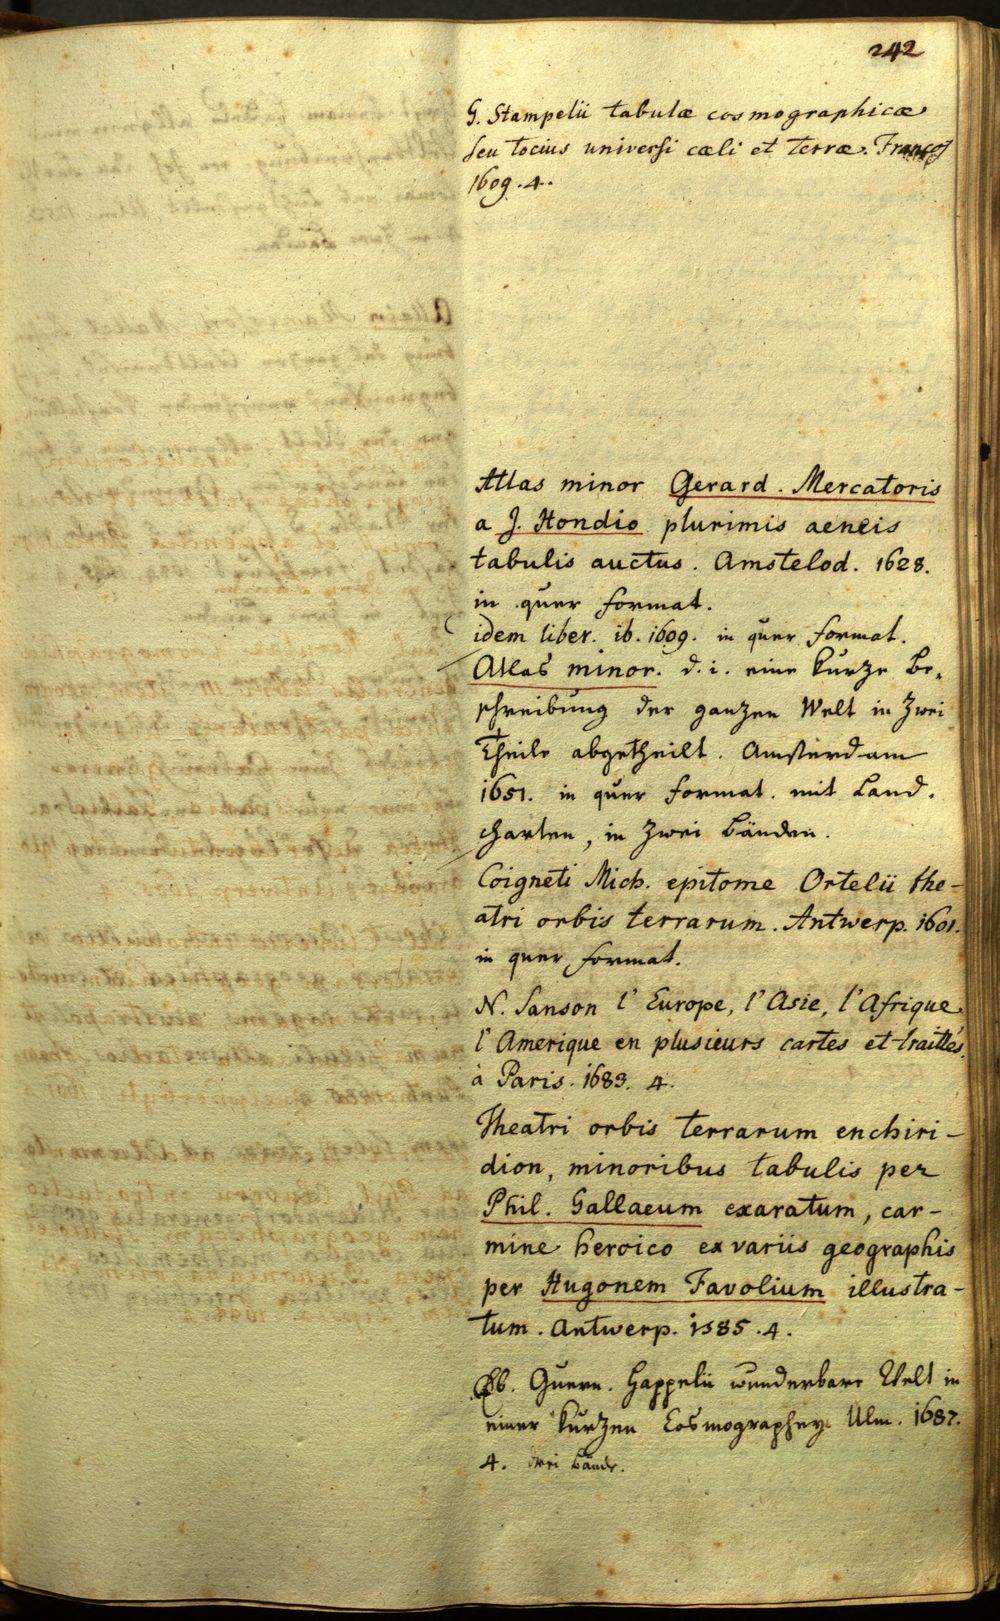 242
G. Stampelii tabulæ cosmographicæ
seu tocius universi cæli et terræ. Francof
1609. 4.
Atlas minor Gerard. Mercatoris
a J. Hondio plurimis aeneis
tabulis auctus. Amstelod. 1628.
in quer format.
idem liber. ib. 1609. in quer format.
Atlas minor. d. i. eine kurze Be-
schreibung der ganzen Welt in zwei
Theile abgetheilt. Amsterdam
1651. in quer format. mit Land.
charten, in zwei Bänden.
Coigneti Mich. epitome Ortelii the-
atri orbis terrarum. Antwerp. 1601.
in quer format.
N. Sanson l'Europe, l'Asie, l'Afrique
l'Amerique en plusieurs cartes et traittés.
à Paris. 1683. 4.
Theatri orbis terrarum enchiri-
dion, minoribus tabulis per
Phil. Gallaeum exaratum, car-
mine heroico ex variis geographis
per Hugonem Favolium illustra-
tum. Antwerp. 1585. 4.
Eb. Guern. Happelii wunderbare Welt in
einer kurzen Cosmographey. Ulm. 1687.
4. drei Bände.